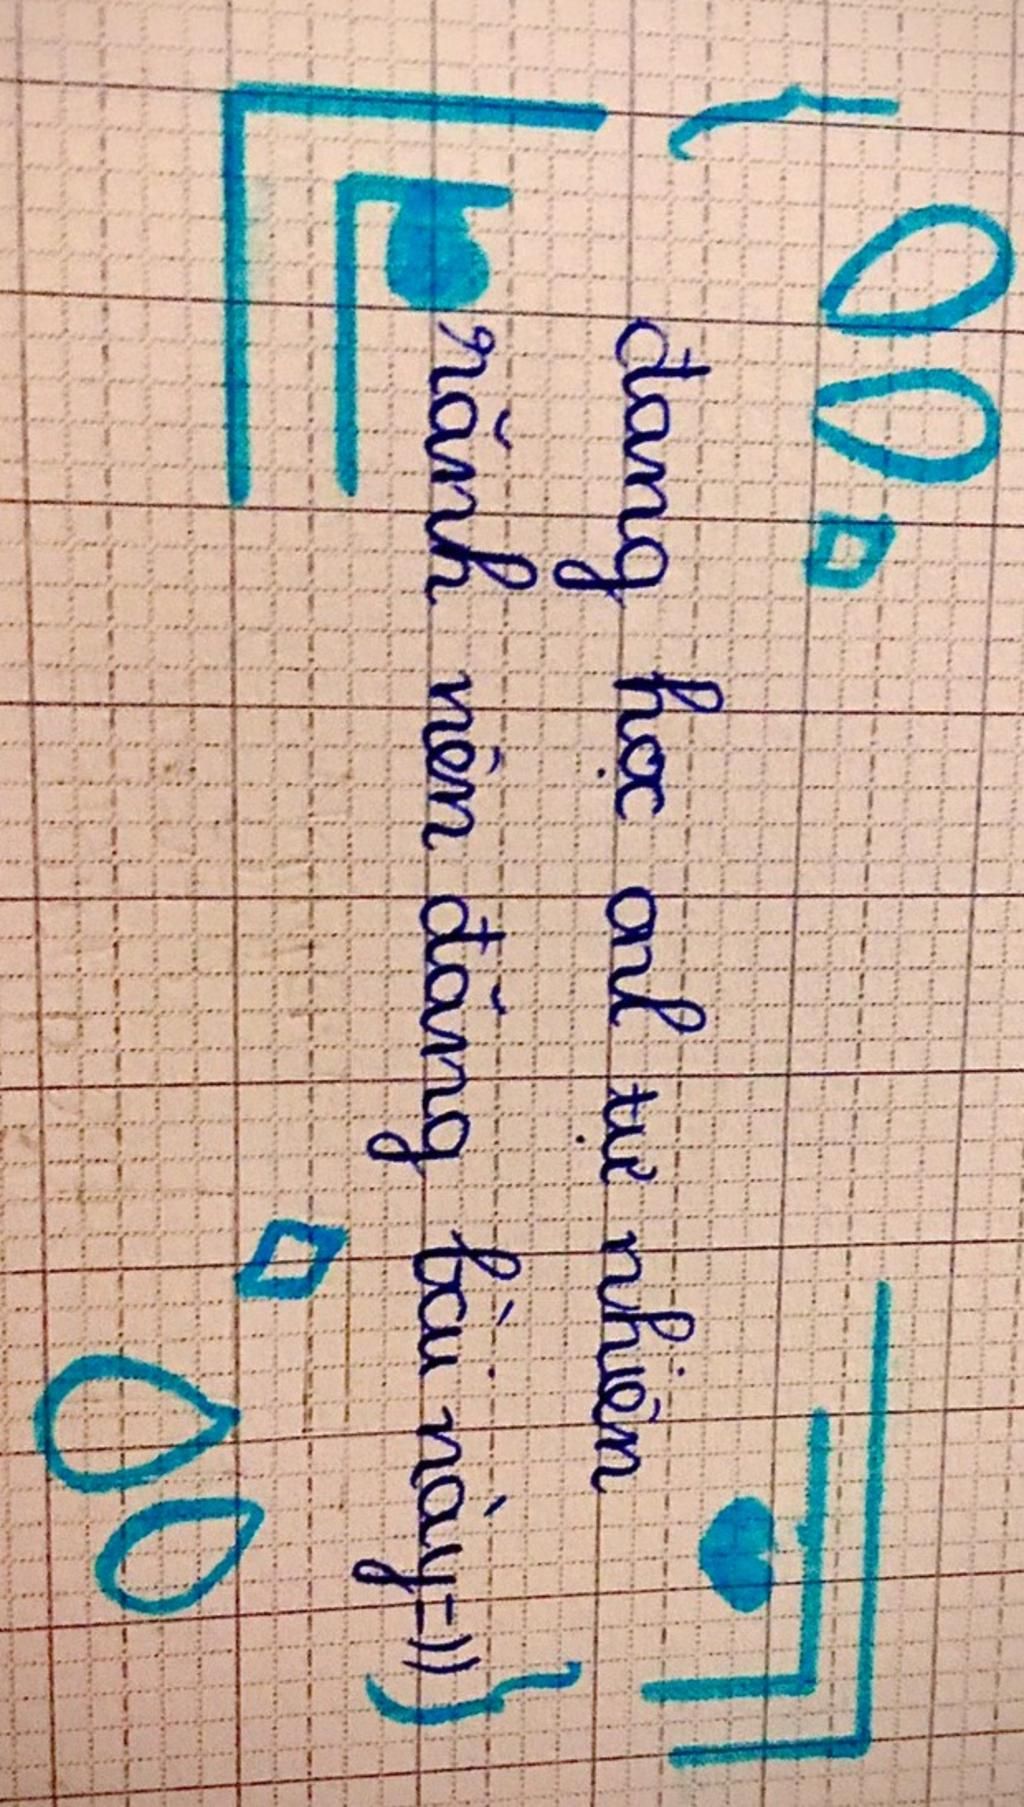 đang học onl tự nhiên
rảnh nên đăng bài này=))